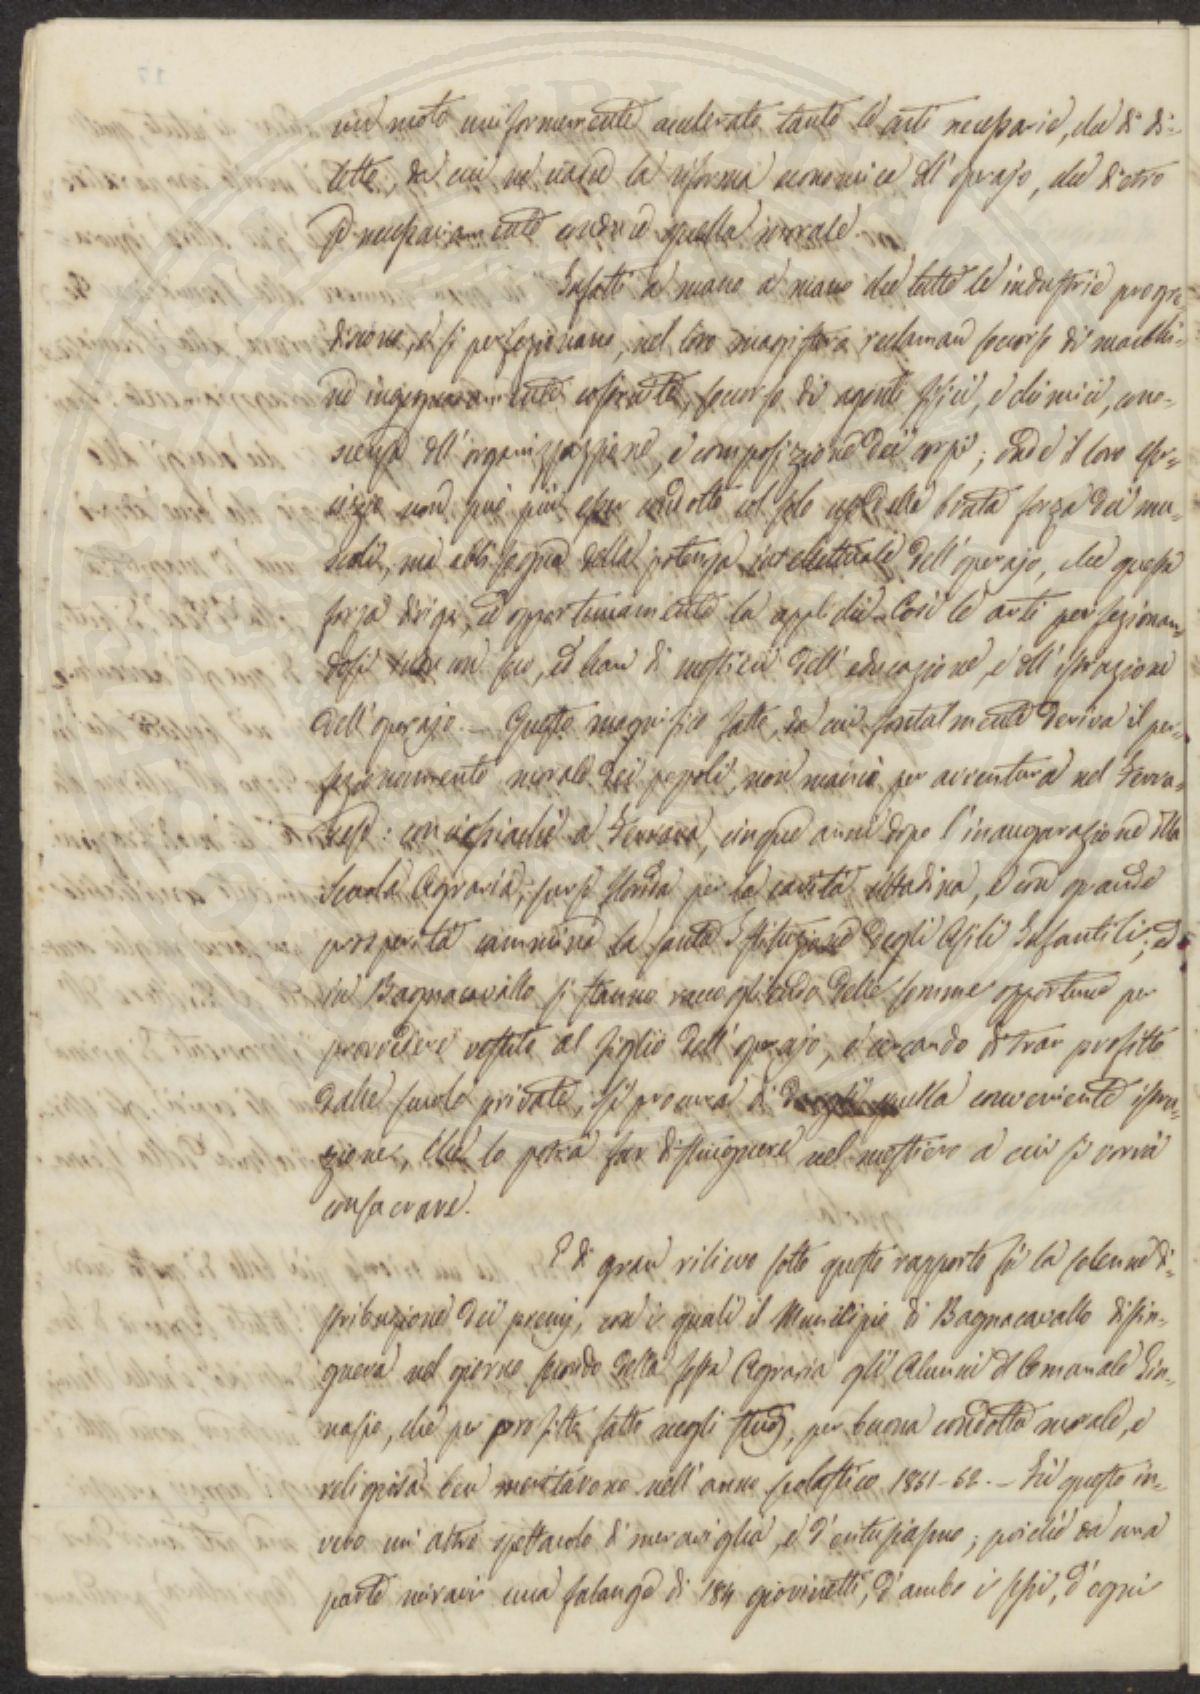 un moto uniformemente accelerato tanto le arti necessarie, che di di-
letto, da cui ne nasce la riforma economica dell'operajo, che dietro
se necessariamente conduce quella morale.
Infatti a mano a mano che tutte le industrie progre-
discono, e si perfezionano, nel loro magistero reclaman soccorso di macchi-
ne ingegnosamente costrutte, soccorso di agenti fisici, e chimici, cono-
scenza dell'organizzazione, e composizione dei corpi; onde il loro eser-
cizio non può più esser condotto col solo uso della bruta forza dei mu-
scoli, ma abbisogna della potenza intellettuale dell'operajo, che questa
forza diriga, ed opportunamente la applichi. Così le arti perfezionan-
dosi han di mestieri dell'educazione, e dell'istruzione
dell'operajo. – Questo magnifico fatto, da cui fontalmente deriva il per-
fezionamento morale dei popoli, non mancò per avventura nel Ferra-
rese: conciossiachè a Ferrara, cinque anni dopo l'inaugurazione della
Scuola Agraria, surse florida per la carità cittadina, e con grande
prosperità cammina la santa Istituzione degli Asili Infantili; ed
in Bagnacavallo si stanno raccogliendo delle somme opportune per
provvedere vestito al figlio dell'operajo, e cercando di trar profitto
dalle scuole private, si procura di dargli quella conveniente istru-
zione, che lo potrà far distinguere nel mestiero a cui si vorrà
consacrare.
E di gran rilievo sotto questo rapporto fù la solenne di-
stribuzione dei premj, con i quali il Municipio di Bagnacavallo distin-
gueva nel giorno secondo della festa Agraria gli Alunni del Comunale Gin-
nasio, che per profitto fatto negli studj, per buona condotta morale, e
religiosa ben meritavono nell'anno scolastico 1861-62. – Fù questo in-
vero un altro spettacolo di meraviglia, e d'entusiasmo; poichè da una
parte miravi una falange di 184 giovinetti, d'ambo i sessi, d'ogni